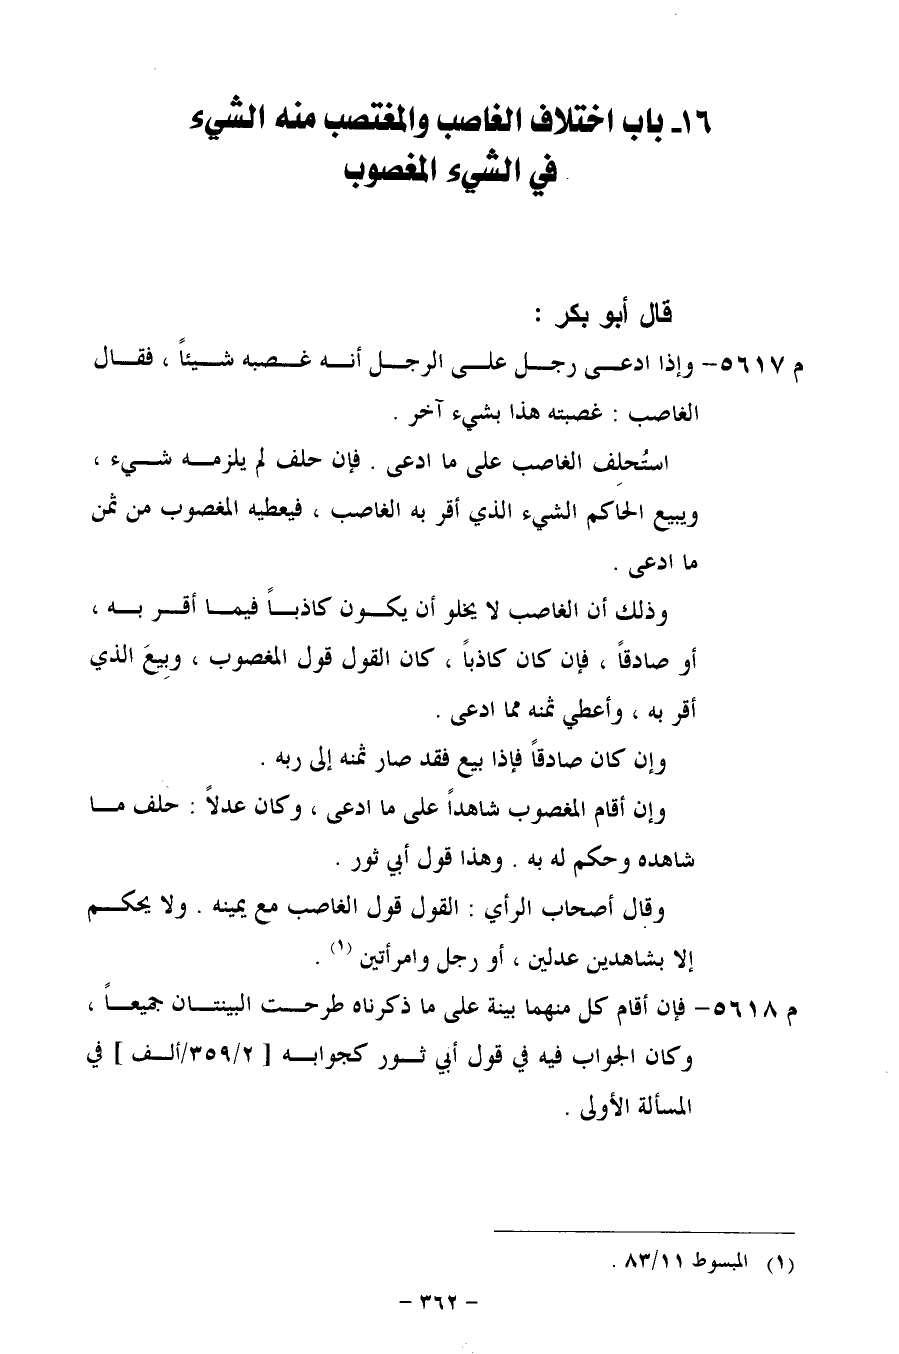 ١٦ـ باب اختلاف الغاصب والمغتصب منه الشيء
في الشيء المغصوب
قال أبو بكر :
م ٥٦١٧– وإذا ادعى رجل على الرجل أنه غصبه شيئاً ، فقال
الغاصب : غصبته هذا بشيء آخر .
استُحلف الغاصب على ما ادعى . فإن حلف لم يلزمه شيء ،
ويبيع الحاكم الشيء الذي أقر به الغاصب ، فيعطيه المغصوب من ثمن
ما ادعى .
وذلك أن الغاصب لا يخلو أن يكون كاذباً فيما أقر به ،
أو صادقاً ، فإن كان كاذباً ، كان القول قول المغصوب ، وبِيعَ الذي
أقر به ، وأعطي ثمنه مما ادعى .
وإن كان صادقاً فإذا بيع فقد صار ثمنه إلى ربه .
وإن أقام المغصوب شاهداً على ما ادعى ، وكان عدلاً : حلف ما
شاهده وحكم له به . وهذا قول أبي ثور .
وقال أصحاب الرأي : القول قول الغاصب مع يمينه . ولا يحكم
إلا بشاهدين عدلين ، أو رجل وامرأتين (١) .
م ٥٦١٨– فإن أقام كل منهما بينة على ما ذكرناه طرحت البينتان جميعاً ،
وكان الجواب فيه في قول أبي ثور كجوابه [ ٣٥٩/٢/ألف ] في
المسألة الأولى .
(١) المبسوط ٨٣/١١ .
– ٣٦٢ –